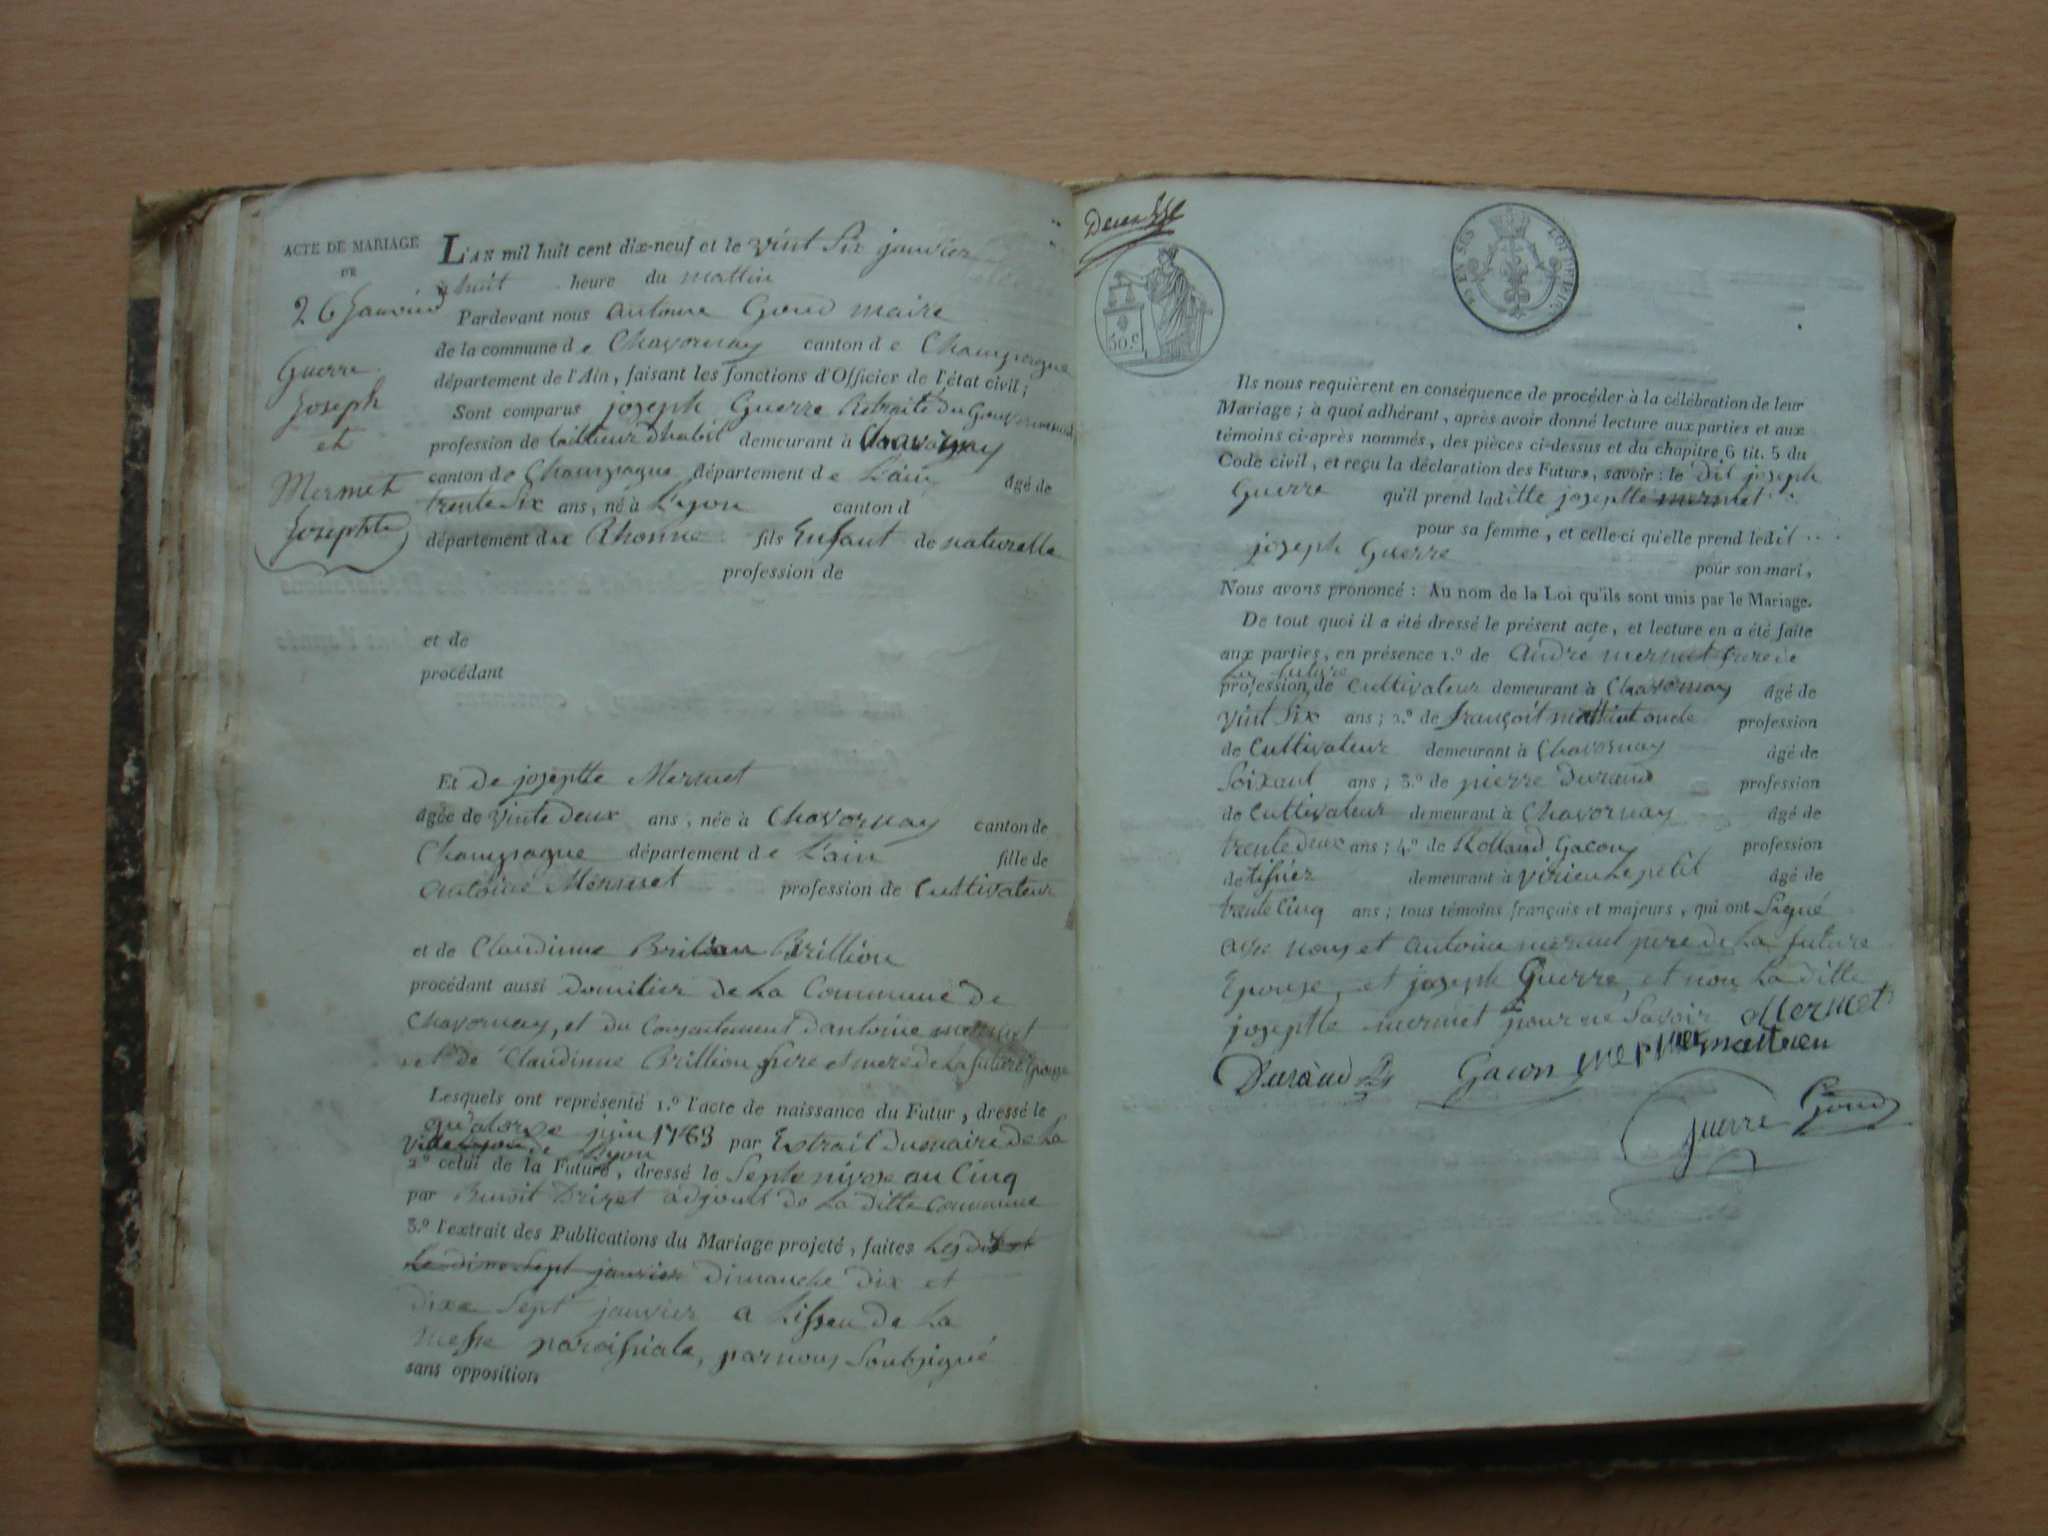 ACTE DE MARIAGE
DE
26 Janvier
Guerre
Joseph
et
Mermet
Josephte
L'AN mil huit cent dix-neuf et le vint Six janvier
à huit heure du mattin
Pardevant nous antoine Goud maire
de la commune de Chavornay canton de Champagne
département de l'Ain, faisant les fonctions d'Officier de l'état civil;
Sont comparus joseph Guerre Retraité du Gouvernement
profession de tailleur dhabit demeurant à Chavornay
canton de Champagne département de L'ain âgé de
trente Six ans, né à Lyon canton d
département du Rhonne fils Enfant de naturelle
profession de
et de
procédant
Et de josephte Mermet
âgée de vinte deux ans, née à Chavornay canton de
Champagne département de L'ain fille de
antoine Mermet profession de Cultivateur
et de Claudinne Brillion
procédant aussi domilier de La Commune de
Chavornay, et du Consentement dantoine mermet
et de Claudinne Brillion pere et mere de La future Epouse
Lesquels ont représenté 1.º l'acte de naissance du Futur, dressé le
quatorze juin 1783 par Extrait du maire de La
ville de Lyon
2º celui de la Future, dressé le Septe nivose au Cinq
par Benoit Drizet adjoint de La ditte Commune
3.º l'extrait des Publications du Mariage projeté, faites Les dix et
Le dime Sept janvier dimanche dix et
dixe Sept janvier a Lisseu de La
Messe paroissiale, par nous Soubsigné
sans opposition
30.C
EN SES
Ils nous requièrent en conséquence de procéder à la célébration de leur
Mariage; à quoi adhérant, après avoir donné lecture aux parties et aux
témoins ci-après nommés, des pièces ci-dessus et du chapitre 6 tit. 5 du
Code civil, et reçu la déclaration des Futurs, savoir: le dit joseph
Guerre qu'il prend laditte josephte mermet
pour sa femme, et celle-ci qu'elle prend ledit
joseph Guerre
pour son mari,
Nous avons prononcé: Au nom de la Loi qu'ils sont unis par le Mariage.
De tout quoi il a été dressé le présent acte, et lecture en a été faite
aux parties, en présence 1.º de André mermet frere de
La future
profession de Cultivateur demeurant à Chavornay âgé de
vint Six ans; 2.º de françoit oncle profession
de Cultivateur demeurant à Chavornay âgé de
Soixant ans; 3.º de pierre Durand profession
de Cultivateur demeurant à Chavornay âgé de
trente deux ans; 4.º de Rolland Gacon profession
de tisser demeurant à Virieu Le petit âgé de
trente Cinq ans; tous témoins français et majeurs, qui ont Signé
avec nous et antoine mermet pere de La future
Epouse, et joseph Guerre, et non La ditte
josephte mermet pour ne Savoir Mermet
Durand Gacon mermet
Guerre Goud